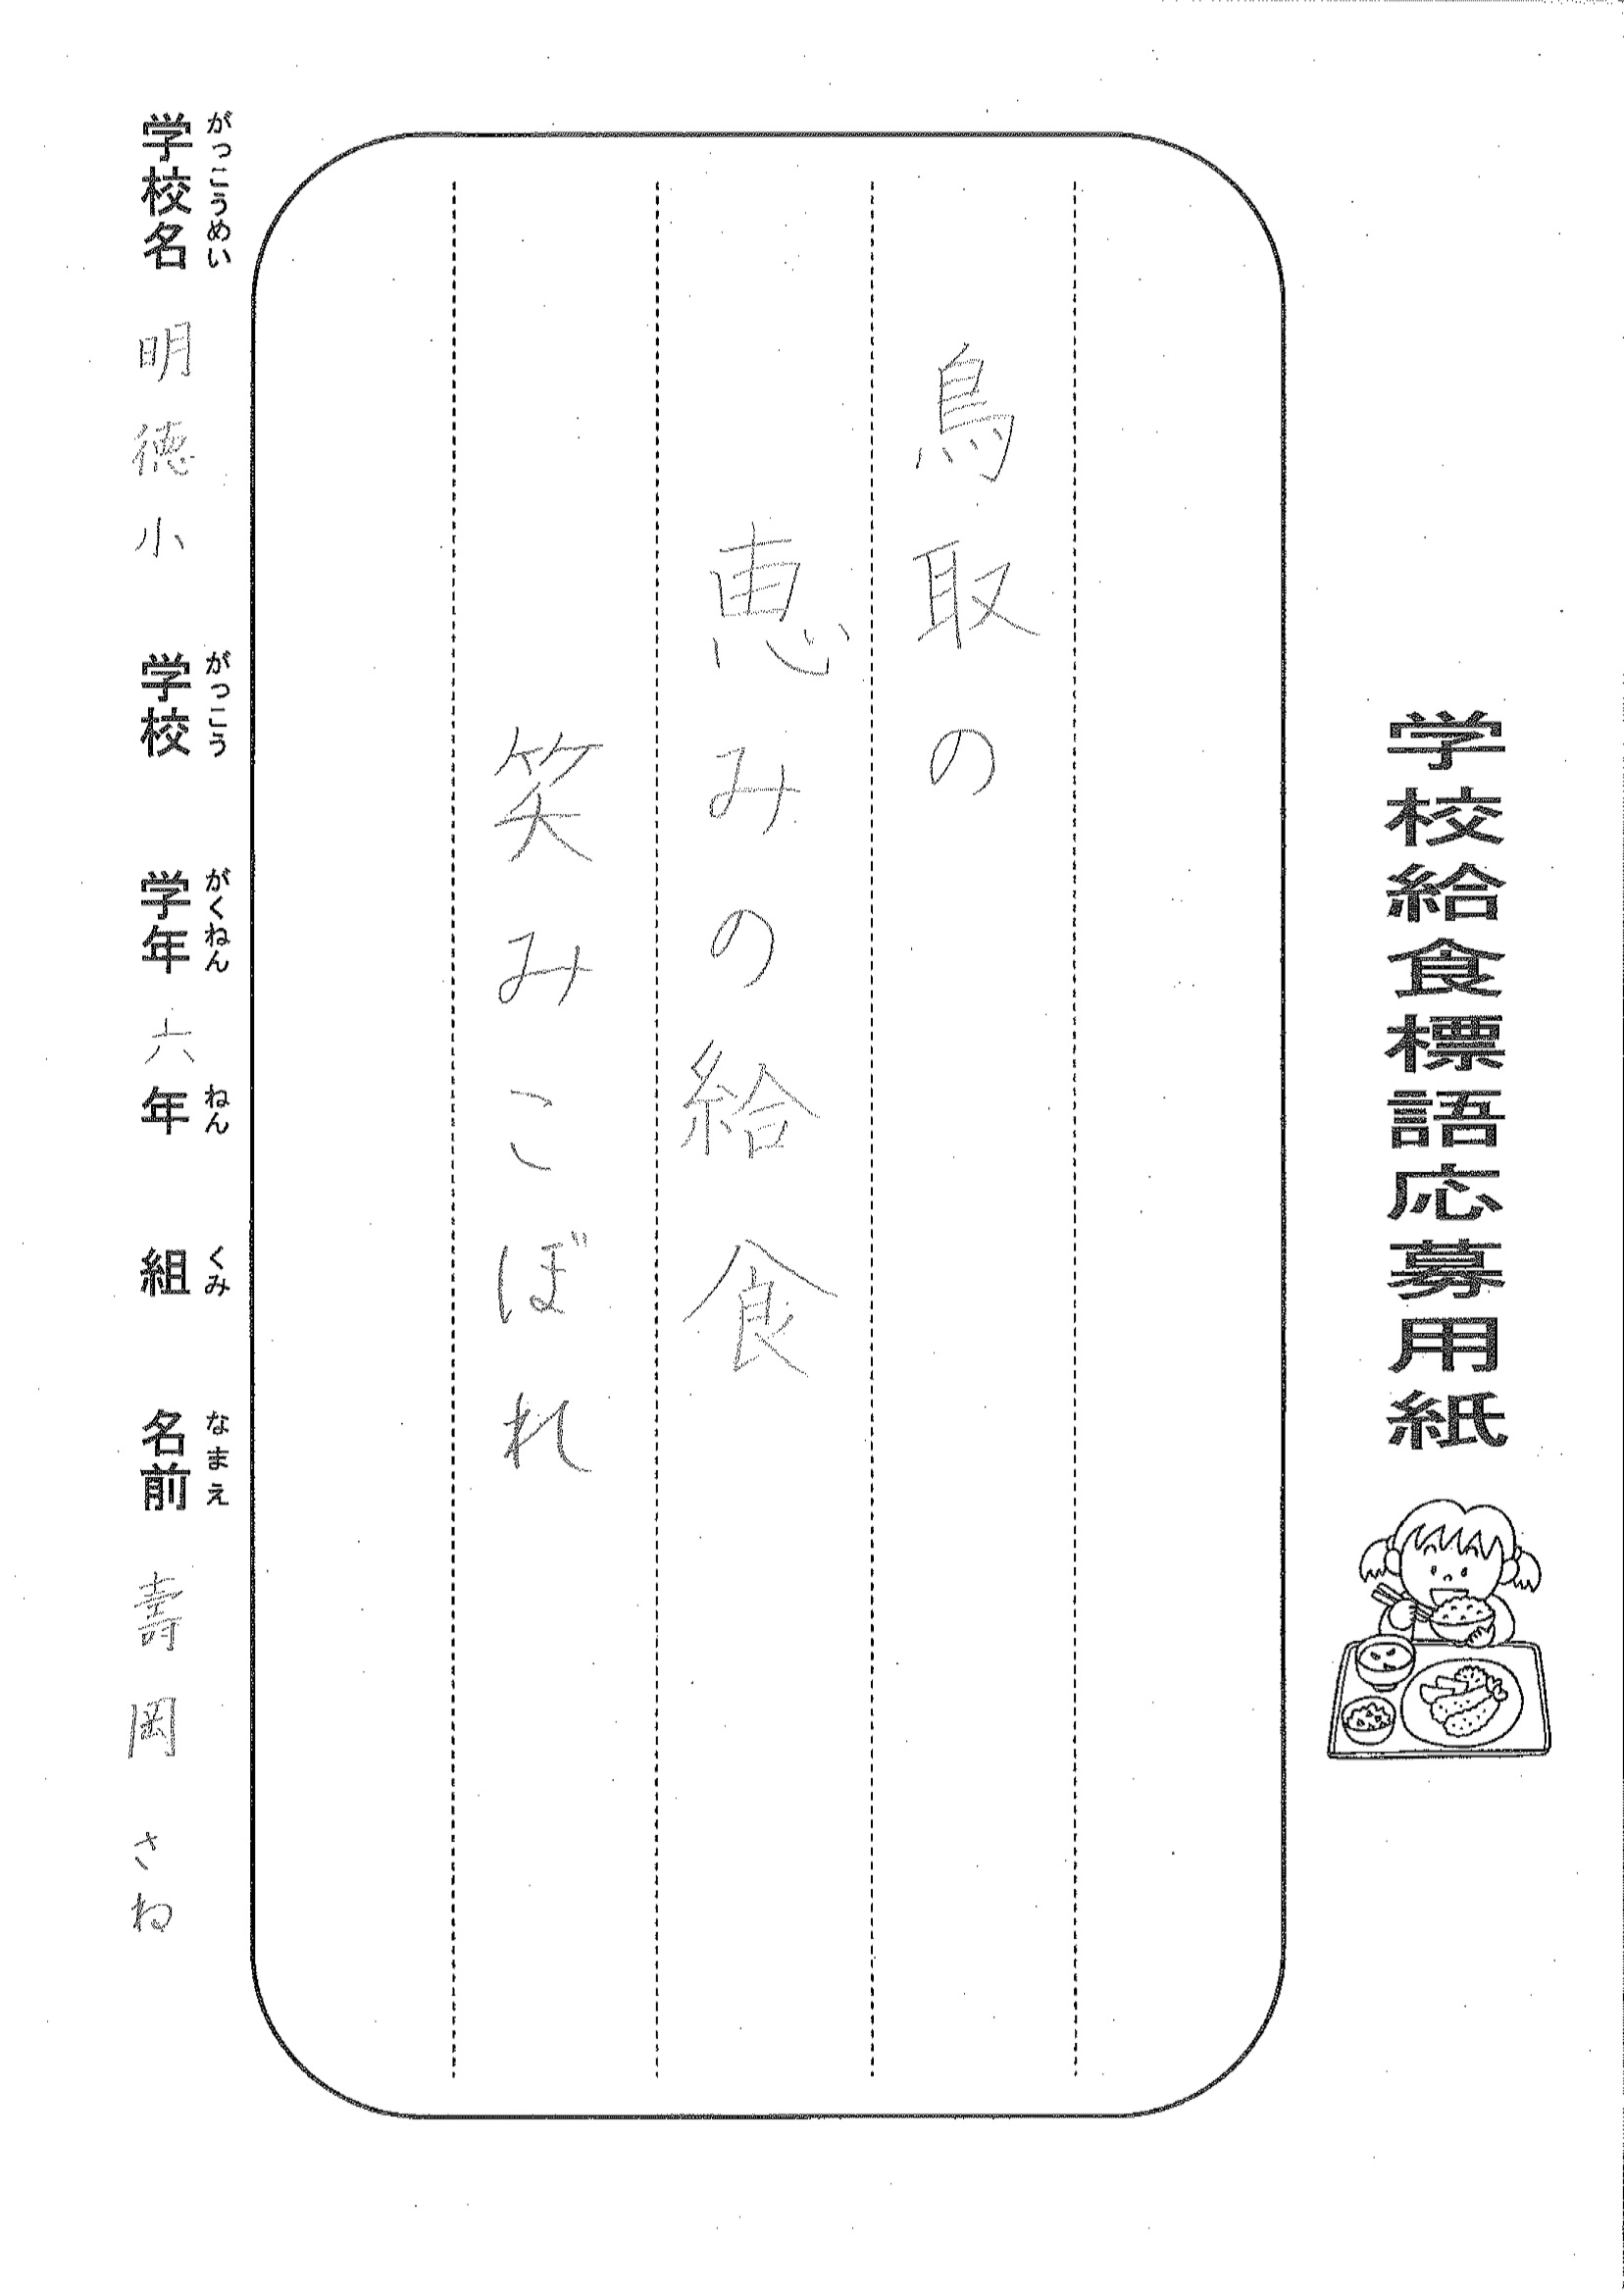 学校給食標語応募用紙
鳥取の
恵みの給食
笑みこぼれ
がっこうめい がっこう がくねん ねん くみ なまえ
学校名 明徳小 学校 学年 六 年 組 名前 壽岡 さね